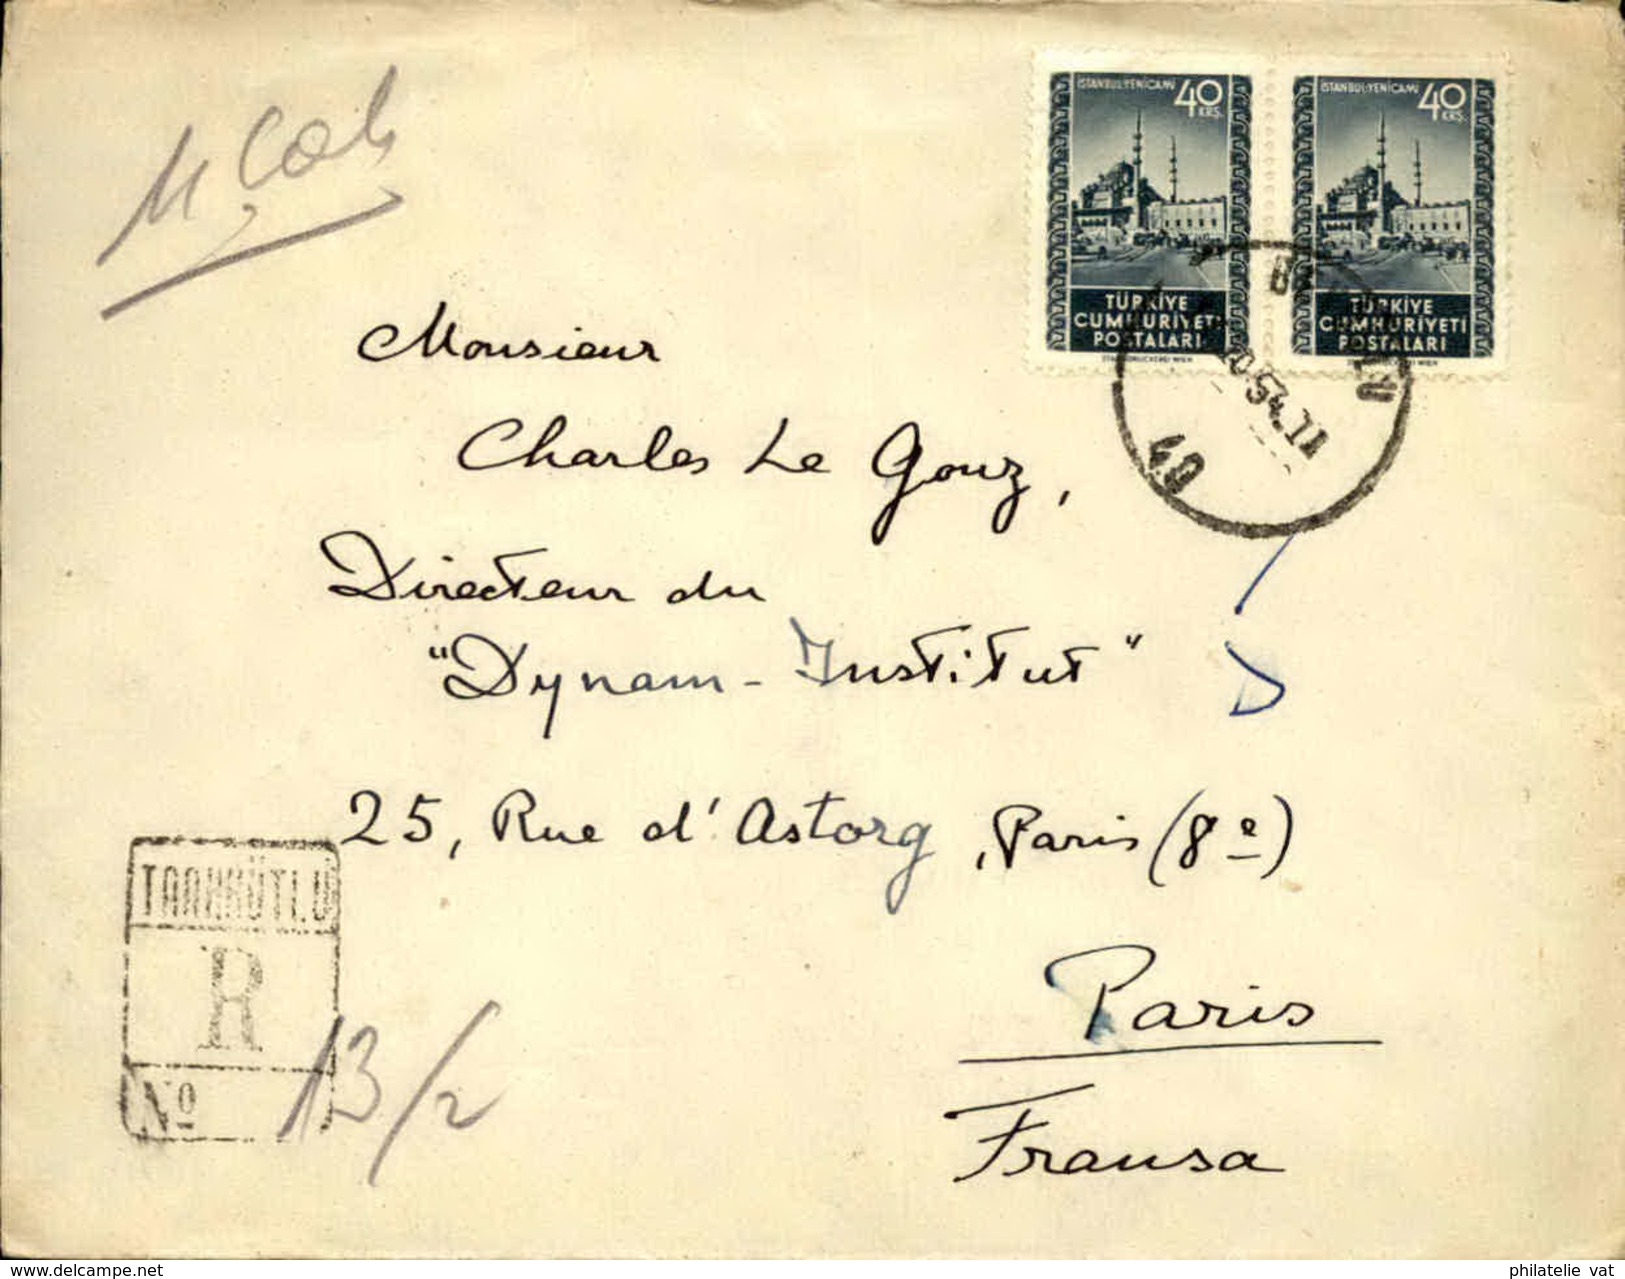 İSTANBUL-YENİCAMİ 40 KRŞ.
TÜRKİYE
CUMHURİYETİ
POSTALARI
İSTANBUL-YENİCAMİ 40 KRŞ.
TÜRKİYE
CUMHURİYETİ
POSTALARI
54.11
Monsieur
Charles Le Gouz,
Directeur du
"Dynam-Institut"
25, Rue d'Astorg, Paris (8e)
Paris
Fransa
TAAHHÜTLÜ
R
Nº 13/2
www.delcampe.net
philatelie_vat